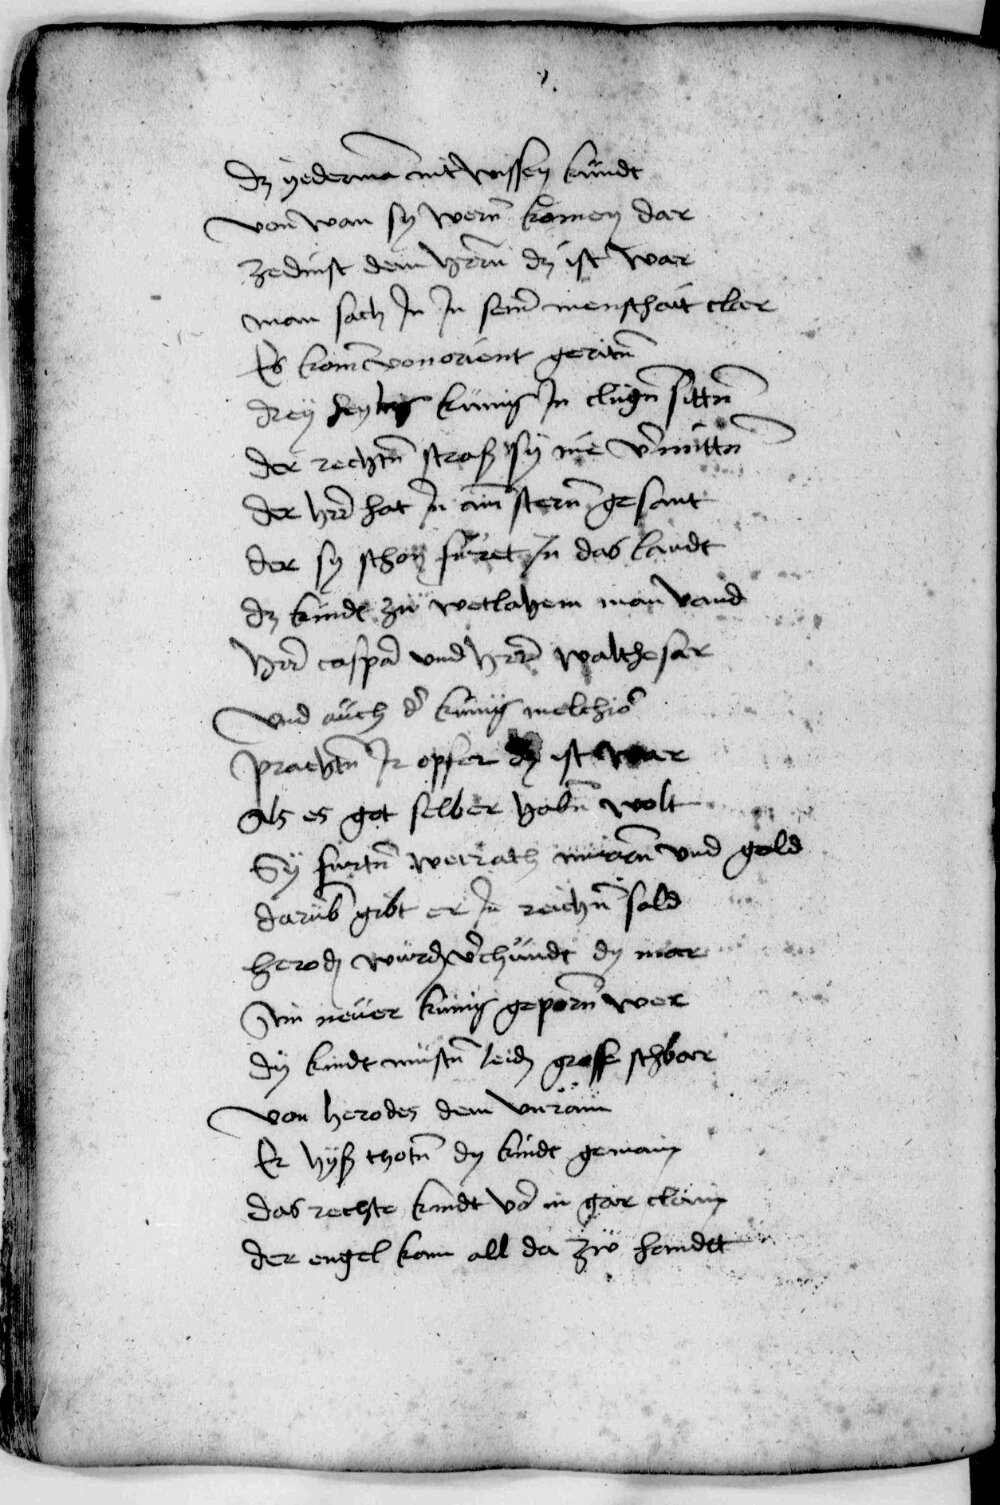 dz yederman nit wissen kundt
von wan sy wern komen dar
zedinst dem herrn dz ist war
man sach Jn Jn seiner menschait clar
Es komen von orient geritn
drey heylig kunig Jn clugn sittn
der rechtn straß sy nie vermittn
der herr hat Jn ain stern gesant
der sy schon furet Jn das landt
dz kindt zu wetlahem man vand
herr caspar und herr walthesar
vnd auch der kunig melchior
prachtn Jr opfer dz ist war
Als es got selber habn wolt
Sy furtn weirach mirrn vnd gold
darumb gibt er Jn reichn sold
herodes wurd verchundt dy mer
Ain neuer kunig geporn wer
dy kindt mustn leidn grosse schwar
von herodes dem vnrain
Er hyß thotn dy kindt gemain
das rechte kindt was in gar clain
der engel kam all da zu handt